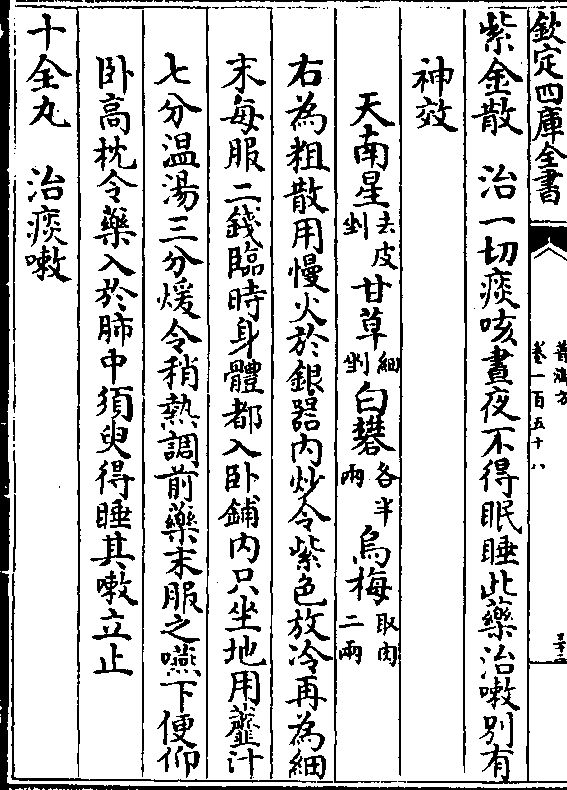 欽定四庫全書
普濟方
卷一百五十八
紫金散 治一切痰咳晝夜不得眠睡此藥治嗽别有
神效
天南星去皮剉甘草細剉白礬各半兩烏梅取肉二兩
右為粗散用慢火於銀器内炒令紫色放冷再為細
末每服二錢臨時身體都入卧鋪内只坐地用虀汁
七分温湯三分煖令稍熱調前藥末服之嚥下便仰
卧高枕令藥入於肺中須臾得睡其嗽立止
十全丸 治痰嗽